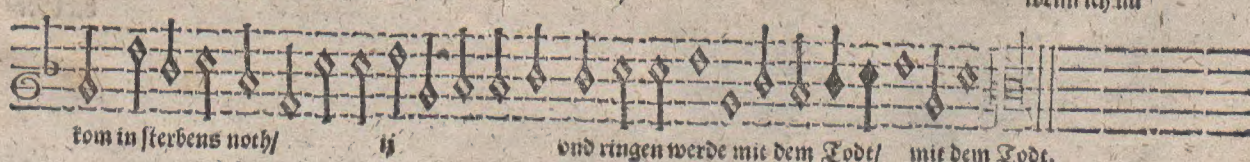 wenn ich nu
kom in ſterbens noth/ ij vnd ringen werde mit dem Todt/ mit dem Todt.